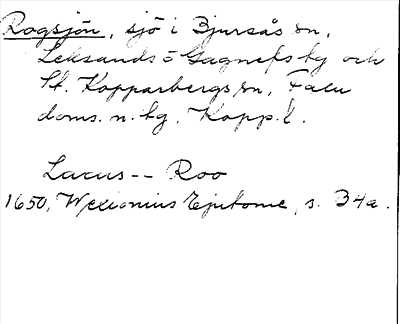 Rogsjön, sjö i Bjursås sn,
Leksands- o Gagnefs tg och
St. Kopparbergs sn, Falu
doms. n. tg. Kopp. l.
Lacus -- Roo
1650, Wexionius Epitome, s. 34a.